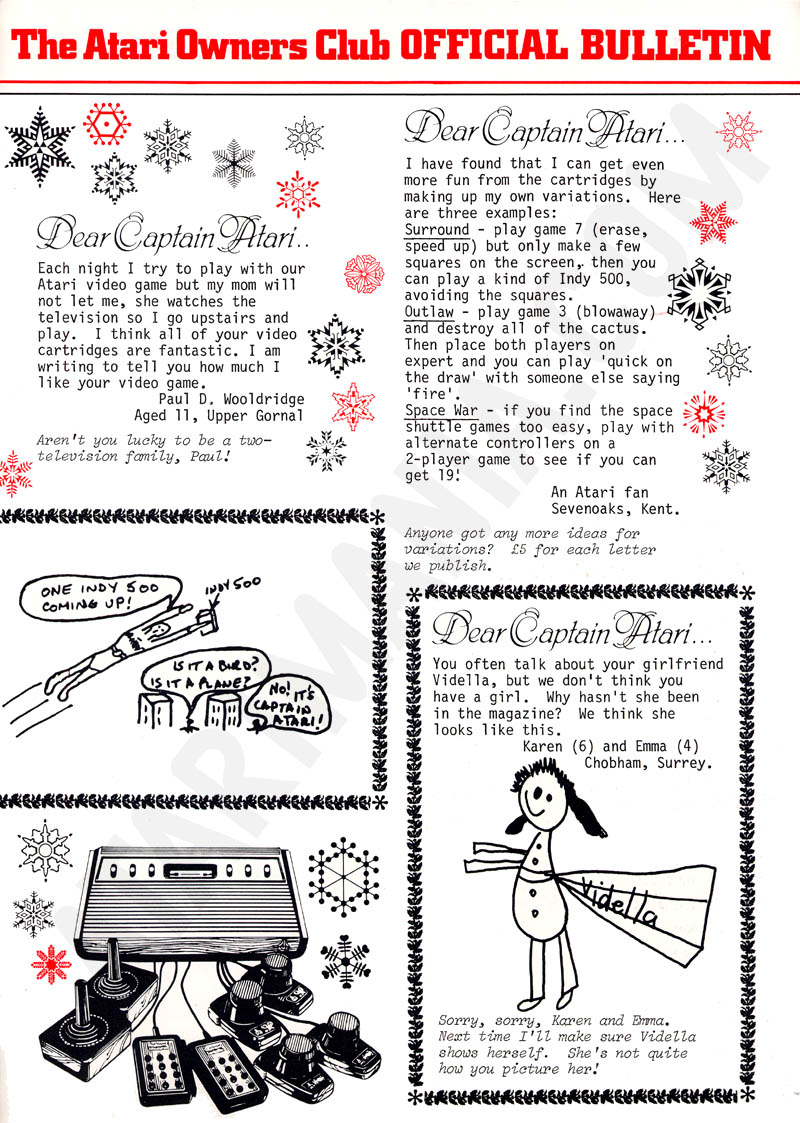 The Atari Owners Club OFFICIAL BULLETIN
Dear Captain Atari..
Each night I try to play with our
Atari video game but my mom will
not let me, she watches the
television so I go upstairs and
play. I think all of your video
cartridges are fantastic. I am
writing to tell you how much I
like your video game.
Paul D. Wooldridge
Aged 11, Upper Gornal
Aren't you lucky to be a two-
television family, Paul!
ONE INDY 500
COMING UP!
INDY 500
IS IT A BIRD?
IS IT A PLANE?
NO! IT'S
CAPTAIN
ATARI!
Dear Captain Atari...
I have found that I can get even
more fun from the cartridges by
making up my own variations. Here
are three examples:
Surround - play game 7 (erase,
speed up) but only make a few
squares on the screen, then you
can play a kind of Indy 500,
avoiding the squares.
Outlaw - play game 3 (blowaway)
and destroy all of the cactus.
Then place both players on
expert and you can play 'quick on
the draw' with someone else saying
'fire'.
Space War - if you find the space
shuttle games too easy, play with
alternate controllers on a
2-player game to see if you can
get 19!
An Atari fan
Sevenoaks, Kent.
Anyone got any more ideas for
variations? £5 for each letter
we publish.
Dear Captain Atari...
You often talk about your girlfriend
Vidella, but we don't think you
have a girl. Why hasn't she been
in the magazine? We think she
looks like this.
Karen (6) and Emma (4)
Chobham, Surrey.
Vidella
Sorry, sorry, Karen and Emma.
Next time I'll make sure Vidella
shows herself. She's not quite
how you picture her!
ATARIMANIA.COM